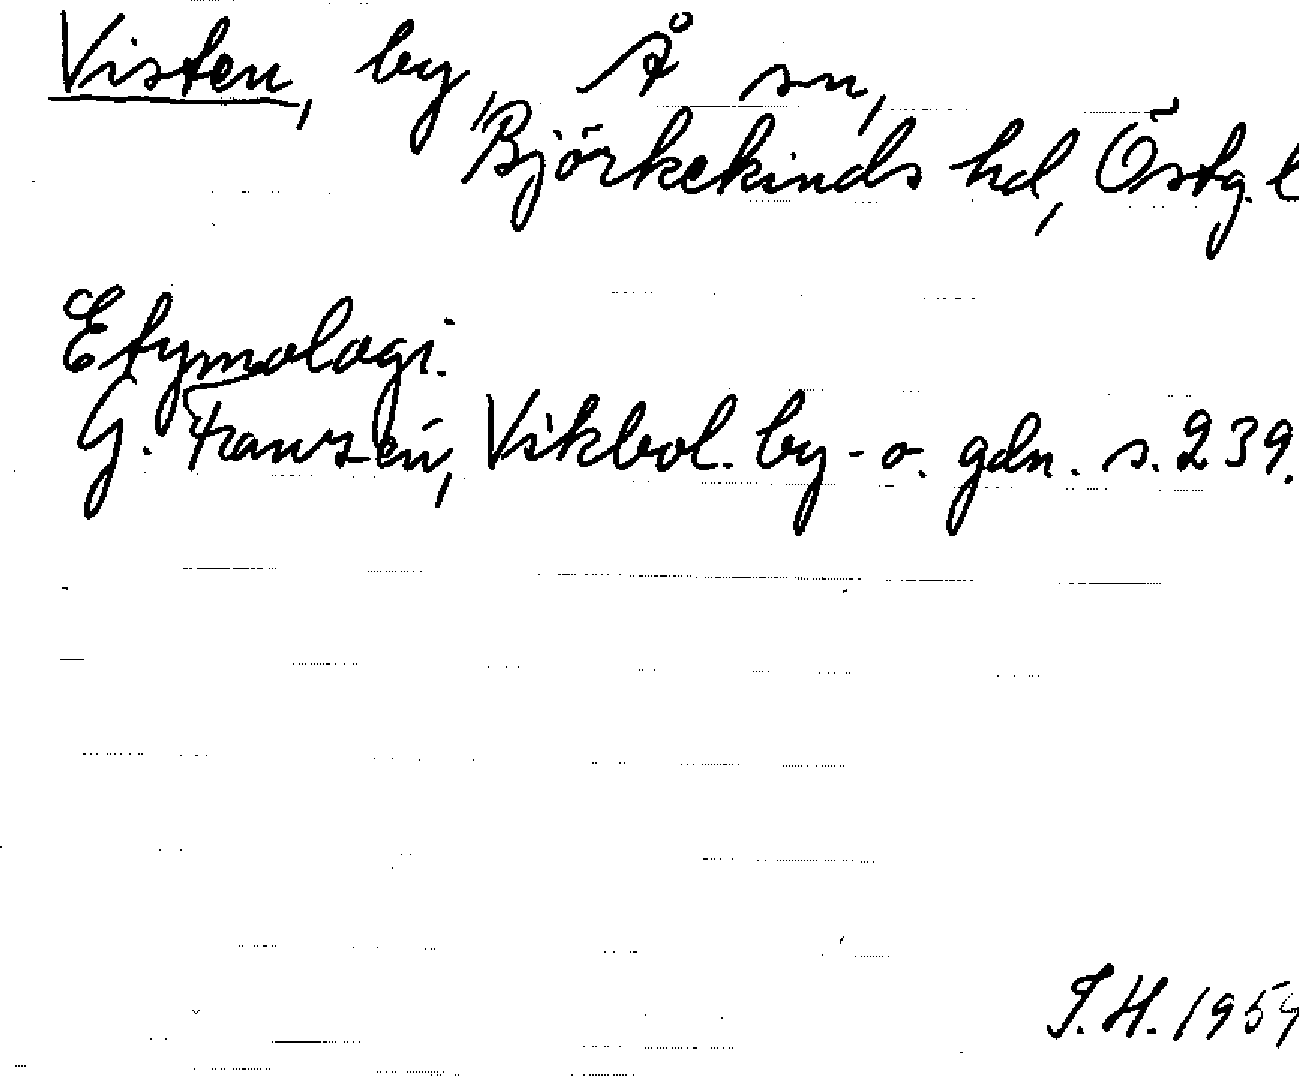 Visten, by Å sn,
Björkekinds hd, Östg. l
Etymologi.
G. Franzén, Vikbol. by- o. gdn. s. 239.
S.H. 1959